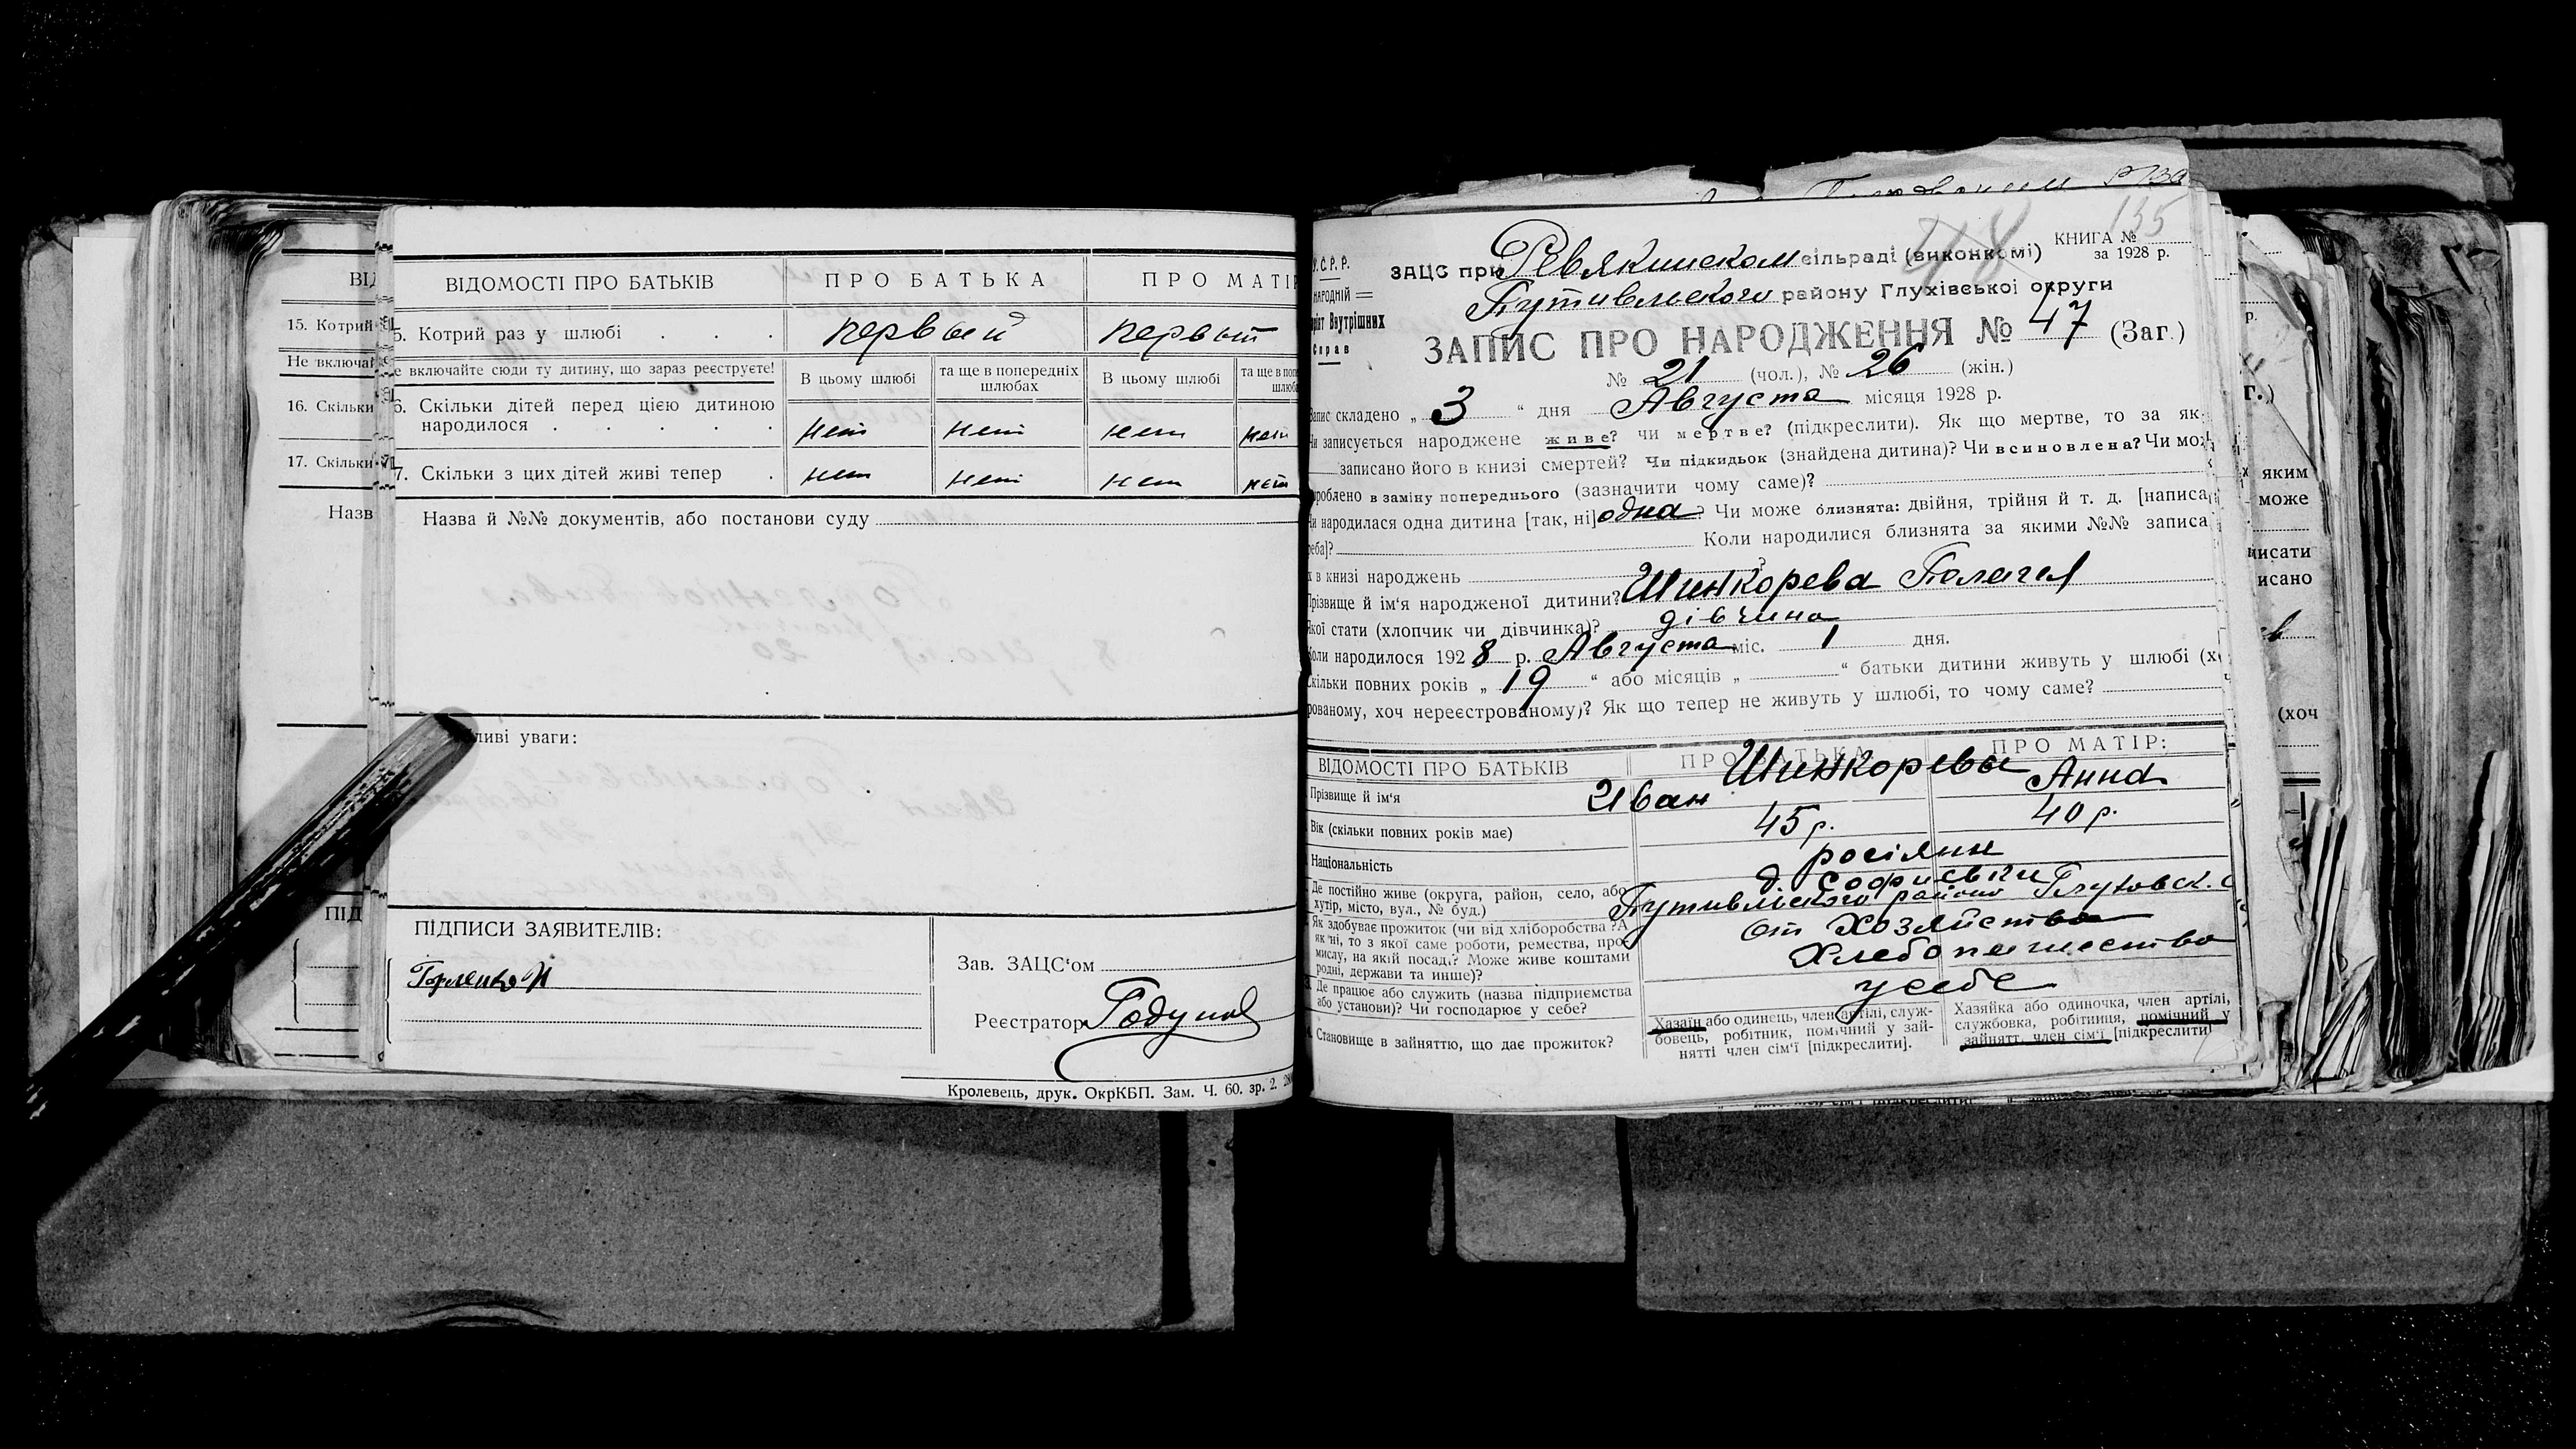 ВІДОМОСТІ ПРО БАТЬКІВ ПРО БАТЬКА ПРО МАТІР
5. Котрий раз у шлюбі . . . первый первый
е включайте сюди ту дитину, що зараз реєструєте! В цьому шлюбі та ще в попередніх шлюбах В цьому шлюбі та ще в поп шлюб
6. Скільки дітей перед цією дитиною
народилося . . . . . нет нет нет нет
7. Скільки з цих дітей живі тепер . нет нет нет нет
Назва й №№ документів, або постанови суду
ливі уваги:
ПІДПИСИ ЗАЯВИТЕЛІВ:
Зав. ЗАЦС‘ом
Реєстратор Годунов
Кролевець, друк. ОкрКБП. Зам. Ч. 60. зр. 2.
15. Котрий
Не включай
16. Скільки
17. Скільки
Назв
ПІД
У.С.Р.Р.
НАРОДНІЙ
Внутрішних
Справ
135
48
КНИГА №
за 1928 р.
ЗАЦС при Ревякинском сільраді (виконкомі)
Путивльского району Глухівської округи
ЗАПИС ПРО НАРОДЖЕННЯ № 47 (Заг.)
№ 21 (чол.), № 26 (жін.)
Запис складено „ 3 “ дня Августа місяця 1928 р.
Чи записується народжене живе? чи мертве? (підкреслити). Як що мертве, то за як
записано його в книзі смертей? Чи підкидьок (знайдена дитина)? Чи всиновлена? Чи мож
роблено в заміну попереднього (зазначити чому саме)?
Чи народилася одна дитина [так, ні] одна? Чи може близнята: двійня, трійня й т. д. [написа
реба]? Коли народилися близнята за якими №№ записа
х в книзі народжень
Прізвище й ім‘я народженої дитини? Шинкорева Пелагея
Якої стати (хлопчик чи дівчинка)? дівчина
Коли народилось 1928 р. Августа міс. 1 дня.
Скільки повних років „ 19 “ або місяців „ “ батьки дитини живуть у шлюбі (х
рованому, хоч нереєстрованому)? Як що тепер не живуть у шлюбі, то чому саме?
ВІДОМОСТІ ПРО БАТЬКІВ ПРО БАТЬКА ПРО МАТІР:
Прізвище й ім‘я Шинкоревы Иван Анна
Вік (скільки повних років має) 45 р. 40 р.
Національность росіяни
Де постійно живе (округа, район, село, або
хутір, місто, вул., № буд.) д. Софиевки
Путивльского району Глуховск. о
Як здобуває прожиток (чи від хліборобства? А
як ні, то з якої саме роботи, ремества, про-
мислу, на якій посаді? Може живе коштами
родні, держави та инше)? От Хозяйства
Хлебопашества
Де працює або служить (назва підприємства
або установи)? Чи господарює у себе? у себе
Становище в зайняттю, що дає прожиток?
Хазаїн або одинець, член артілі, служ-
бовець, робітник, помічний у зай-
нятті член сім‘ї [підкреслити].
Хазяйка або одиночка, член артілі,
службовка, робітниця, помічний у
зайнятт. член сім‘ї [підкреслити]
яким
може
писати
исано
(хоч